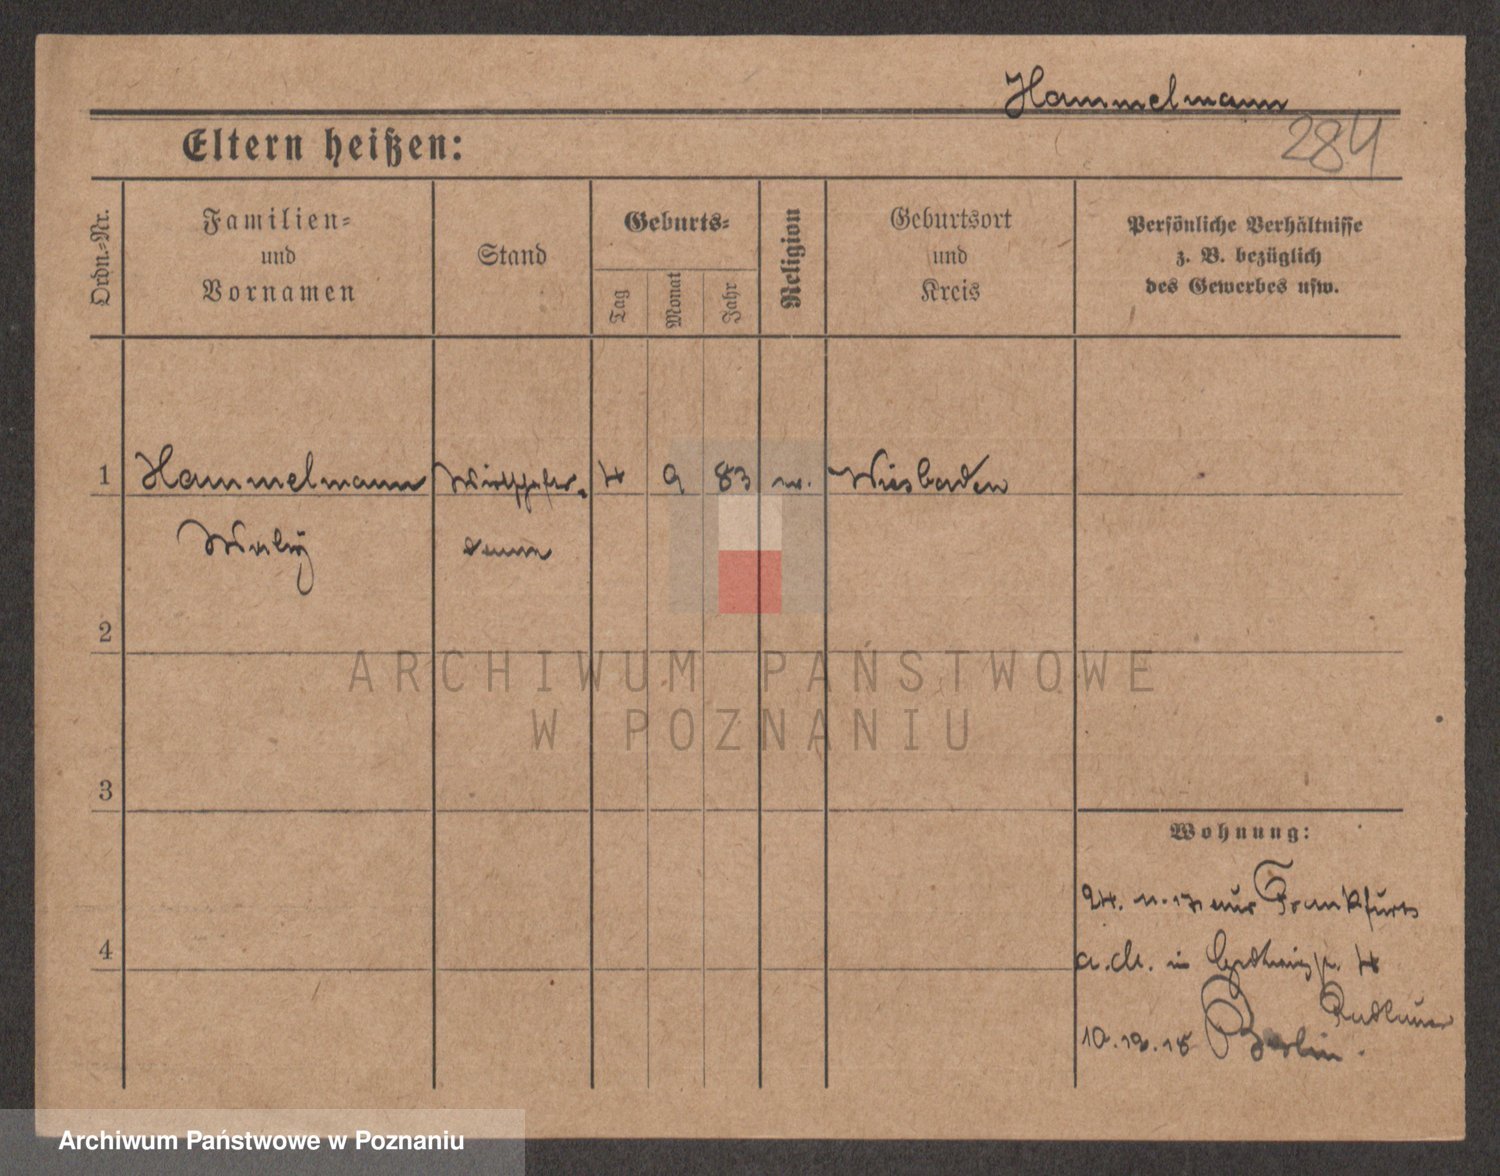 Hammelmann
284
Eltern heißen:
Ordn.=Nr.
Familien=
und
Vornamen
Stand
Geburts=
Tag
Monat
Jahr
Religion
Geburtsort
und
Kreis
Persönliche Verhältnisse
z. B. bezüglich
des Gewerbes usw.
1
Hammelmann
4 9 83
Wiesbaden
2
3
4
ARCHIWUM PAŃSTWOWE
W POZNANIU
Wohnung:
24. 11. 17 aus Frankfurt
a. M. in 4
10. 12. 18 Berlin.
Archiwum Państwowe w Poznaniu